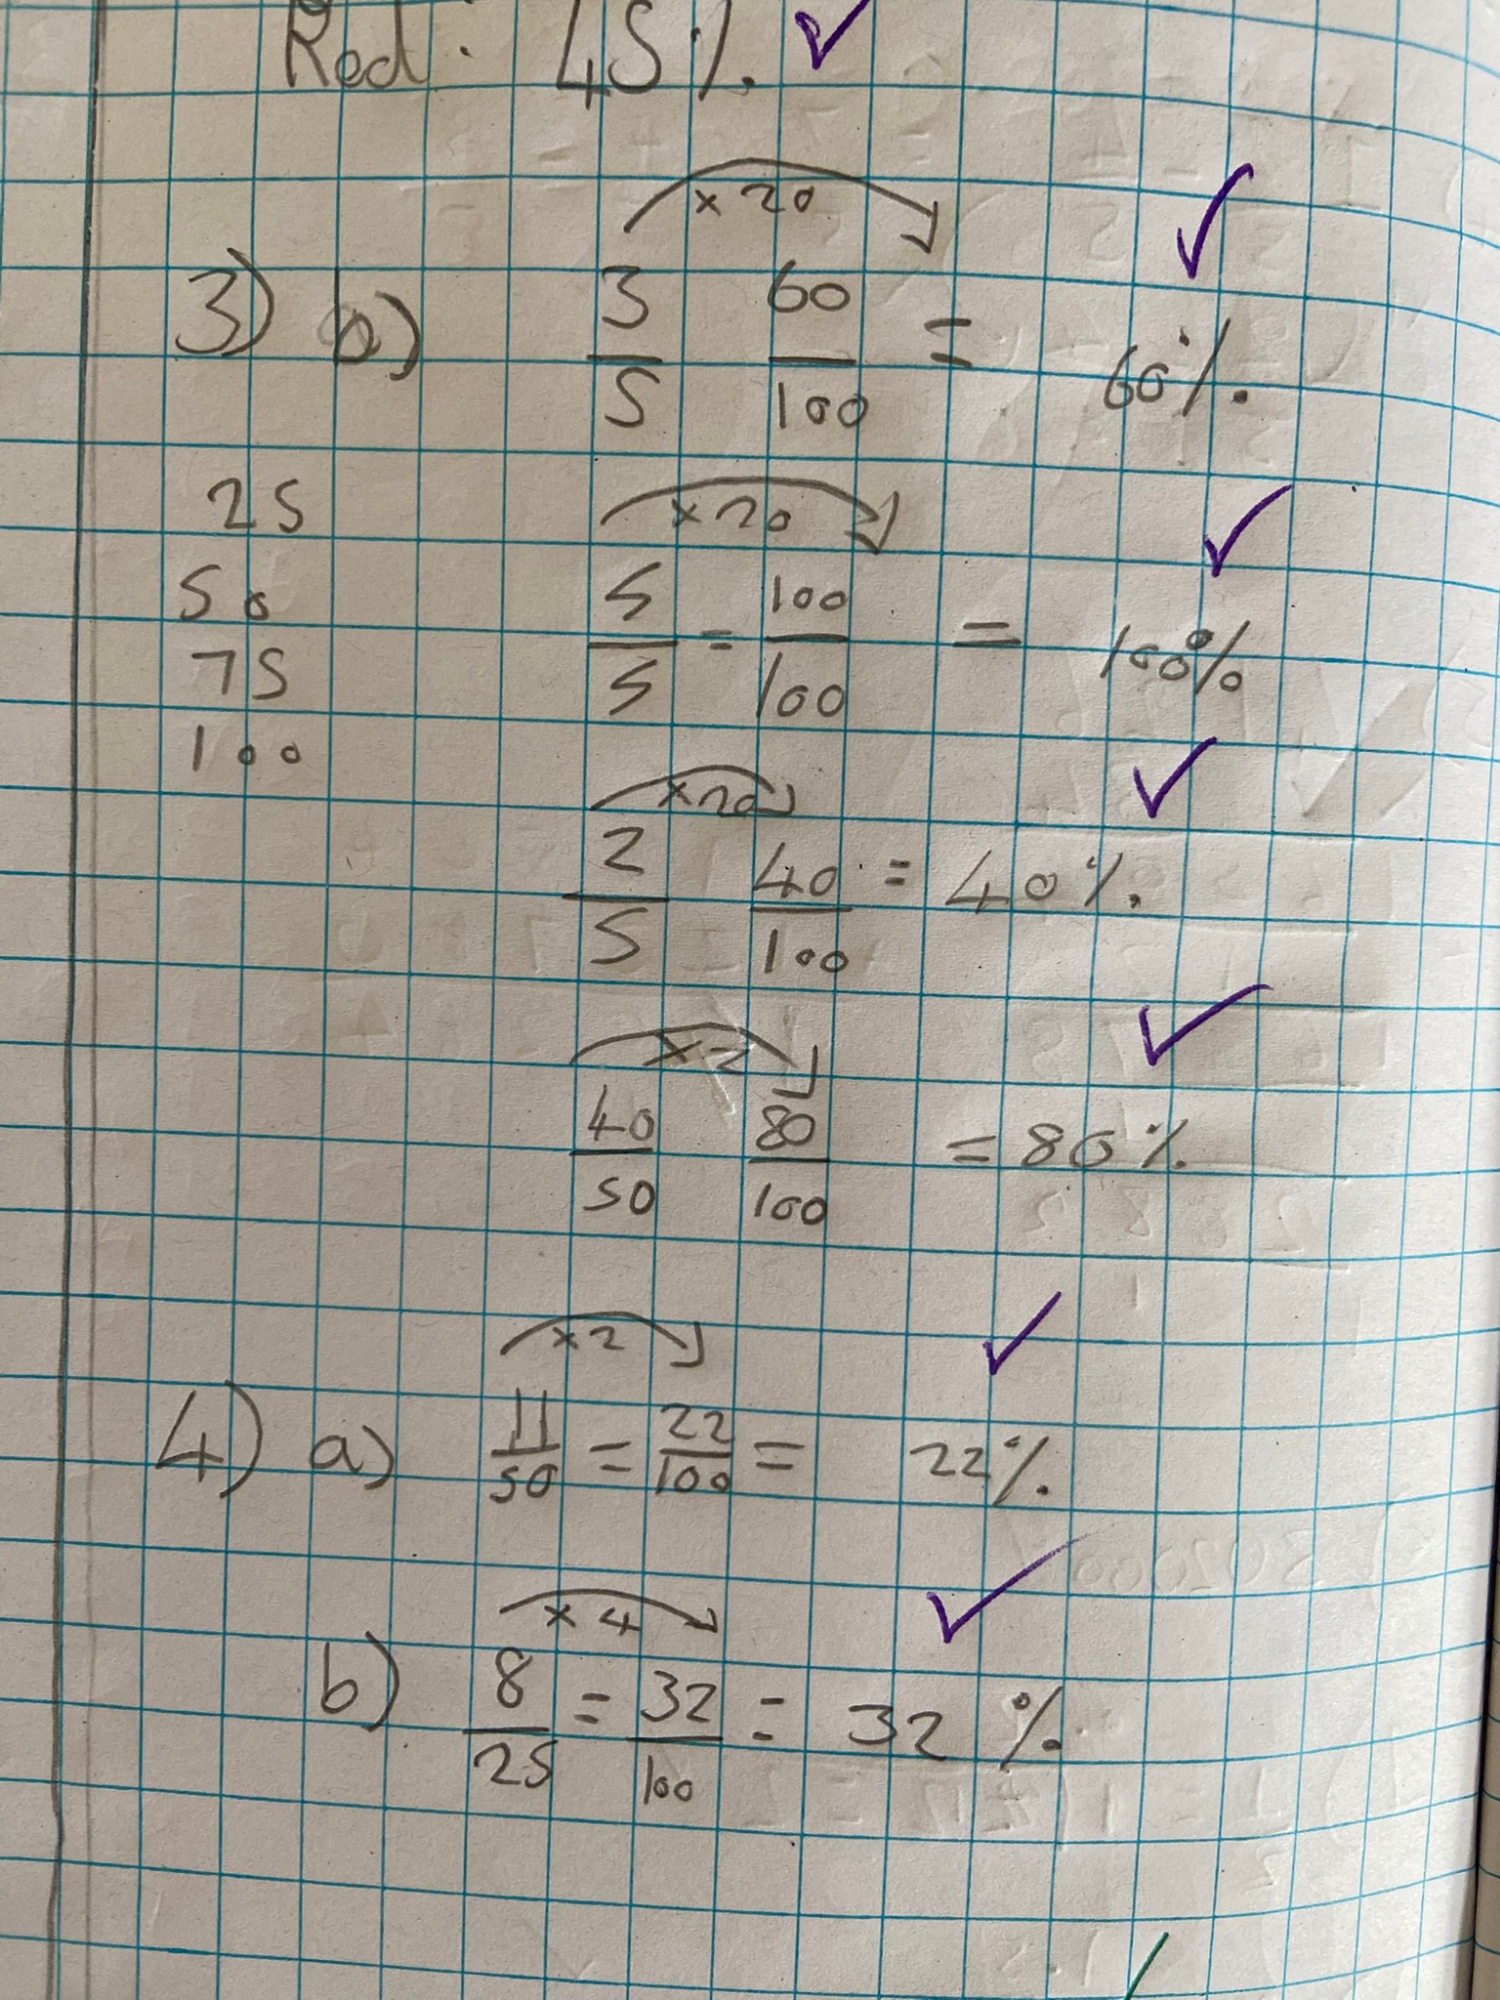 Red : 45%. ✓
× 20 ✓
3) b) 3/5 60/100 = 60%.
25
× 20 ✓
50
5/5 = 100/100 = 100%
75
100
× 20 ✓
2/5 40/100 = 40%.
× 2 ✓
40/50 80/100 = 80%.
× 2 ✓
4) a) 11/50 = 22/100 = 22%.
× 4 ✓
b) 8/25 = 32/100 = 32 %